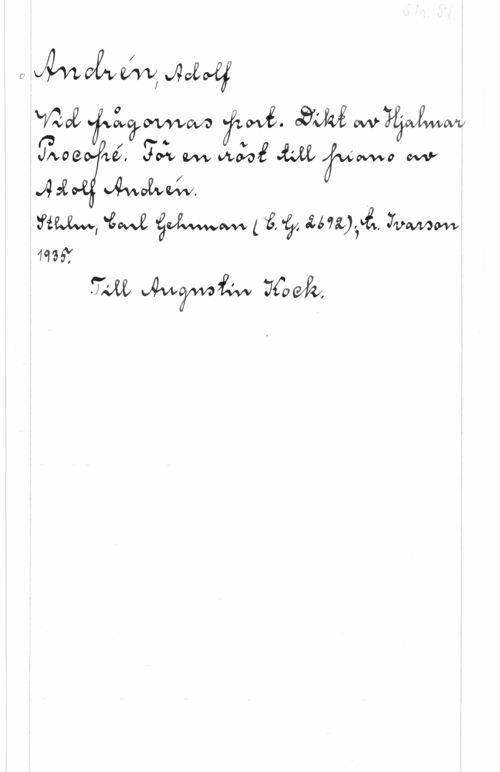 Andrén, Adolf
Vid frågornas port. Dikt av Hjalmar
Procopé. För en röst till piano av
Adolf Andrén.
Sthlm, Carl Gehrman (C. G. 2692); tr. Ivarson
1935.
Till Augustin Kock.